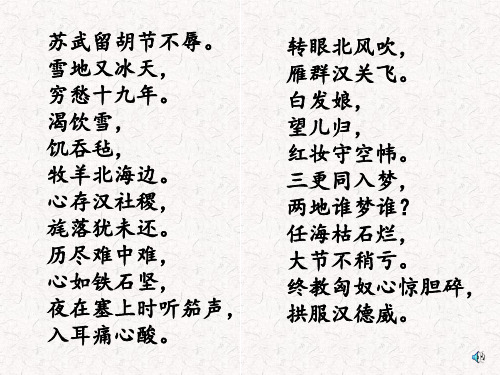 苏武留胡节不辱。
雪地又冰天，
穷愁十九年。
渴饮雪，
饥吞毡，
牧羊北海边。
心存汉社稷，
旄落犹未还。
历尽难中难，
心如铁石坚，
夜在塞上时听笳声，
入耳痛心酸。
转眼北风吹，
雁群汉关飞。
白发娘，
望儿归，
红妆守空帏。
三更同入梦，
两地谁梦谁？
任海枯石烂，
大节不稍亏。
终教匈奴心惊胆碎，
拱服汉德威。